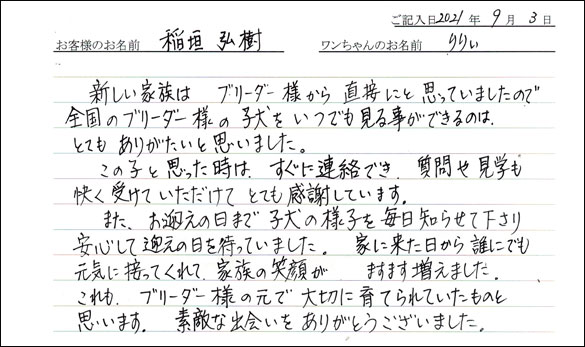 ご記入日2021年 9月 3日
お客様のお名前 稲垣 弘樹 ワンちゃんのお名前 りりぃ
新しい家族は ブリーダー様から直接にと思っていましたので
全国のブリーダー様の子犬をいつでも見る事ができるのは、
とてもありがたいと思いました。
この子と思った時は、すぐに連絡でき、質問や見学も
快く受けていただけてとても感謝しています。
また、お迎えの日まで子犬の様子を毎日知らせて下さり
安心して迎えの日を待っていました。 家に来た日から誰にでも
元気に接ってくれて、家族の笑顔が ますます増えました。
これも、ブリーダー様の元で大切に育てられていたものと
思います。 素敵な出会いをありがとうございました。